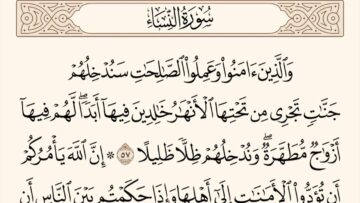 سُورَةُ النِّسَاءِ
وَالَّذِينَ ءَامَنُوا وَعَمِلُوا الصَّٰلِحَٰتِ سَنُدْخِلُهُمْ
جَنَّٰتٍ تَجْرِى مِن تَحْتِهَا الْأَنْهَٰرُ خَٰلِدِينَ فِيهَا أَبَدًا ۖ لَّهُمْ فِيهَا
أَزْوَٰجٌ مُّطَهَّرَةٌ ۖ وَنُدْخِلُهُمْ ظِلًّا ظَلِيلًا ٥٧ ۞ إِنَّ اللَّهَ يَأْمُرُكُمْ
أَن تُؤَدُّوا الْأَمَٰنَٰتِ إِلَىٰٓ أَهْلِهَا وَإِذَا حَكَمْتُم بَيْنَ النَّاسِ أَن